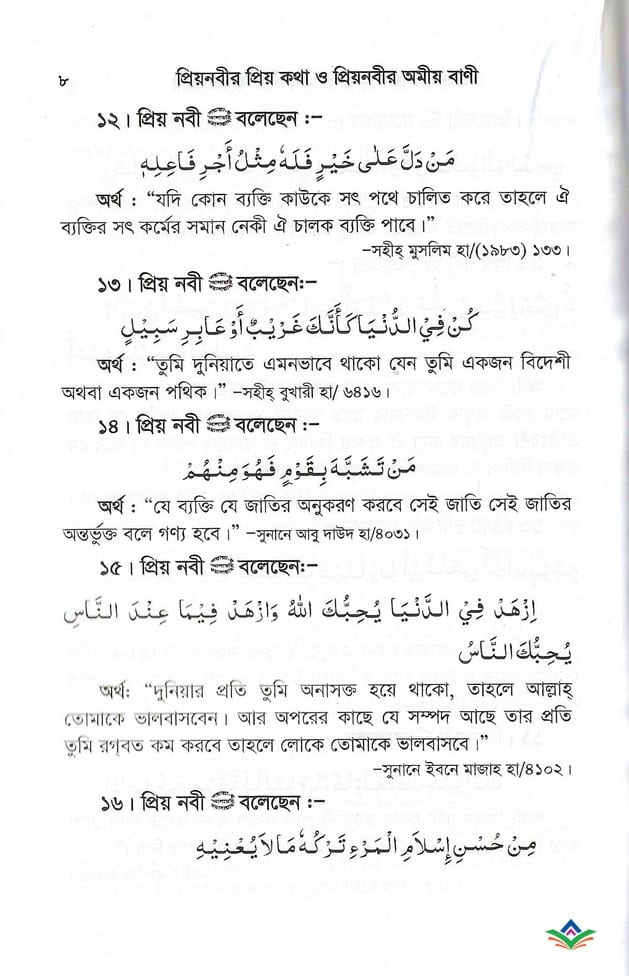 ৮ প্রিয়নবীর প্রিয় কথা ও প্রিয়নবীর অমীয় বাণী
১২। প্রিয় নবী ﷺ বলেছেন :–
مَنْ دَلَّ عَلٰى خَيْرٍ فَلَهٗ مِثْلُ أَجْرِ فَاعِلِهٖ
অর্থ : “যদি কোন ব্যক্তি কাউকে সৎ পথে চালিত করে তাহলে ঐ
ব্যক্তির সৎ কর্মের সমান নেকী ঐ চালক ব্যক্তি পাবে।”
–সহীহ্ মুসলিম হা/(১৯৮৩) ১৩৩।
১৩। প্রিয় নবী ﷺ বলেছেন:–
كُنْ فِيْ الدُّنْيَا كَأَنَّكَ غَرِيْبٌ أَوْ عَابِرِ سَبِيْلٍ
অর্থ : “তুমি দুনিয়াতে এমনভাবে থাকো যেন তুমি একজন বিদেশী
অথবা একজন পথিক।” –সহীহ্ বুখারী হা/ ৬৪১৬।
১৪। প্রিয় নবী ﷺ বলেছেন :–
مَنْ تَشَبَّهَ بِقَوْمٍ فَهُوَ مِنْهُمْ
অর্থ : “যে ব্যক্তি যে জাতির অনুকরণ করবে সেই জাতি সেই জাতির
অন্তর্ভুক্ত বলে গণ্য হবে।” –সুনানে আবু দাউদ হা/৪০৩১।
১৫। প্রিয় নবী ﷺ বলেছেন:–
اِزْهَدْ فِيْ الدُّنْيَا يُحِبُّكَ اللهُ وَازْهَدْ فِيْمَا عِنْدَ النَّاسِ
يُحِبُّكَ النَّاسُ
অর্থ: “দুনিয়ার প্রতি তুমি অনাসক্ত হয়ে থাকো, তাহলে আল্লাহ্
তোমাকে ভালবাসবেন। আর অপরের কাছে যে সম্পদ আছে তার প্রতি
তুমি রগ্‌বত কম করবে তাহলে লোকে তোমাকে ভালবাসবে।”
–সুনানে ইবনে মাজাহ হা/৪১০২।
১৬। প্রিয় নবী ﷺ বলেছেন :–
مِنْ حُسْنِ إِسْلَامِ الْمَرْءِ تَرْكُهٗ مَا لَا يَعْنِيْهِ